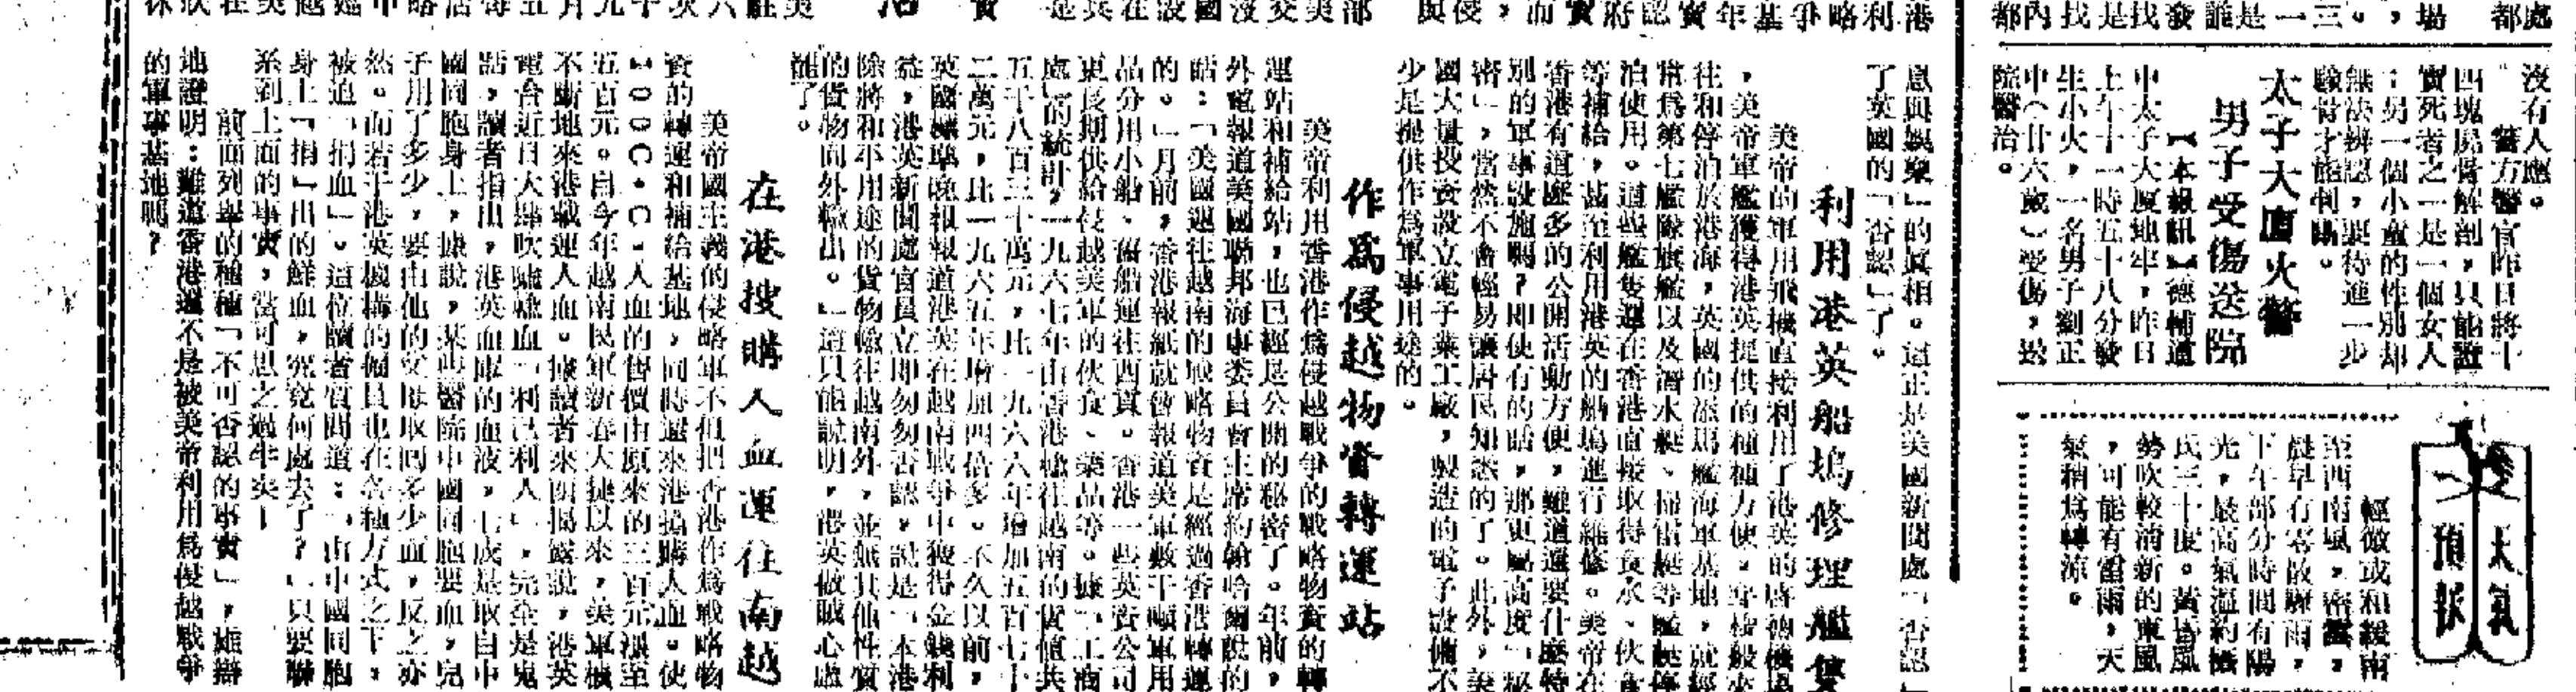 處都
場
，
。三
一
是
誰
發
找
是
找
內
都
沒有人應。
警方醫官昨日將十
四塊屍骨解剖，只能證
實死者之一是一個女人
；另一個小童的性別却
無法辨認，要待進一步
驗骨才能判明。
太子大廈火警
男子受傷送院
【本報訊】德輔道
中太子大廈地牢，昨日
上午十一時五十八分發
生小火，一名男子劉正
中（廿六歲）受傷，送
院醫治。
天氣
預報
輕微或和緩南
至西南風，密雲，
晨早有零散驟雨，
下午部分時間有陽
光，最高氣溫約攝
氏三十度。黃昏風
勢吹較清新的東風
，可能有雷雨，天
氣稍爲轉涼。
的眞相。這正是美國新聞處「否認」
了英國的「否認」了。
利用港英船塢修理艦隻
美帝的軍用飛機直接利用了港英的
，美帝軍艦獲得港英提供的種種方便。
往和停泊於港海，英國的添馬艦海軍基地，就經
常爲第七艦隊旗艦以及潛水艇、掃雷艇等艦艇停
泊使用。這些艦隻還在香港直接取得食水、伙食
等補給，甚至利用港英的船塢進行維修。美帝在
香港有這麼多的公開活動方便，難道還要什麼特
別的軍事設施嗎？即使有的話，那更屬高度「秘
密」，當然不會輕易讓居民知悉的了。此外，美
國大量投資設立電子業工廠，製造的電子設備不
少是提供作爲軍事用途的。
作爲侵越物資轉運站
美帝利用香港作爲侵越戰爭的戰略物資的轉
運站和補給站，也已經是公開的秘密了。年前，
外電報道美國聯邦海事委員會主席約翰哈爾說的
話：「美國運往越南的戰略物資是經過香港轉運
的。」月前，香港報紙就曾報道英軍數千噸軍用
品分用小船、舊船運往西貢。香港一些英資公司
更長期供給侵越美軍的伙食、藥品等。據「工商
處」的統計，一九六七年由香港輸往越南的貨值共
五千八百三十萬元，比一九六六年增加五百七十
二萬元，比一九六五年增加四倍多。不久以前，
英國 晚報報道港英在越南戰爭中獲得金錢利
益，港英新聞處官員立即匆匆否認，說是「本港
除將和不用途的貨物輸往越南外，並無其他性質
的貨物向外輸出。」這只能說明，港英做賊心虛
罷了。
在港搜購人血運往南越
美帝國主義的侵略軍不但把香港作爲戰略物
資的轉運和補給基地，同時還來港搶購人血。使
100C.C.人血的售價由原來的三百元漲至
五百元。自今年越南民軍新春大捷以來，美軍機
不斷地來港載運人血。據讀者來函揭露說，港英
電台近日大肆吹噓驗血「利己利人」，完全是鬼
話，讀者指出，港英血庫的血液，七成是取自中
國同胞身上，據說，某些醫院中國同胞要血，兒
子用了多少，要由他的父母取回多少血，反之亦
然。而若干港英機構的僱員也在各種方式之下，
被迫「捐血」。這位讀者質問道：「由中國同胞
身上「捐」出的鮮血，究竟何處去了？」只要聯
系到上面的事實，當可思之過半矣！
前面列舉的種種「不可否認的事實」，雄辯
地證明：難道香港還不是被美帝利用爲侵越戰爭
的軍事基地嗎？